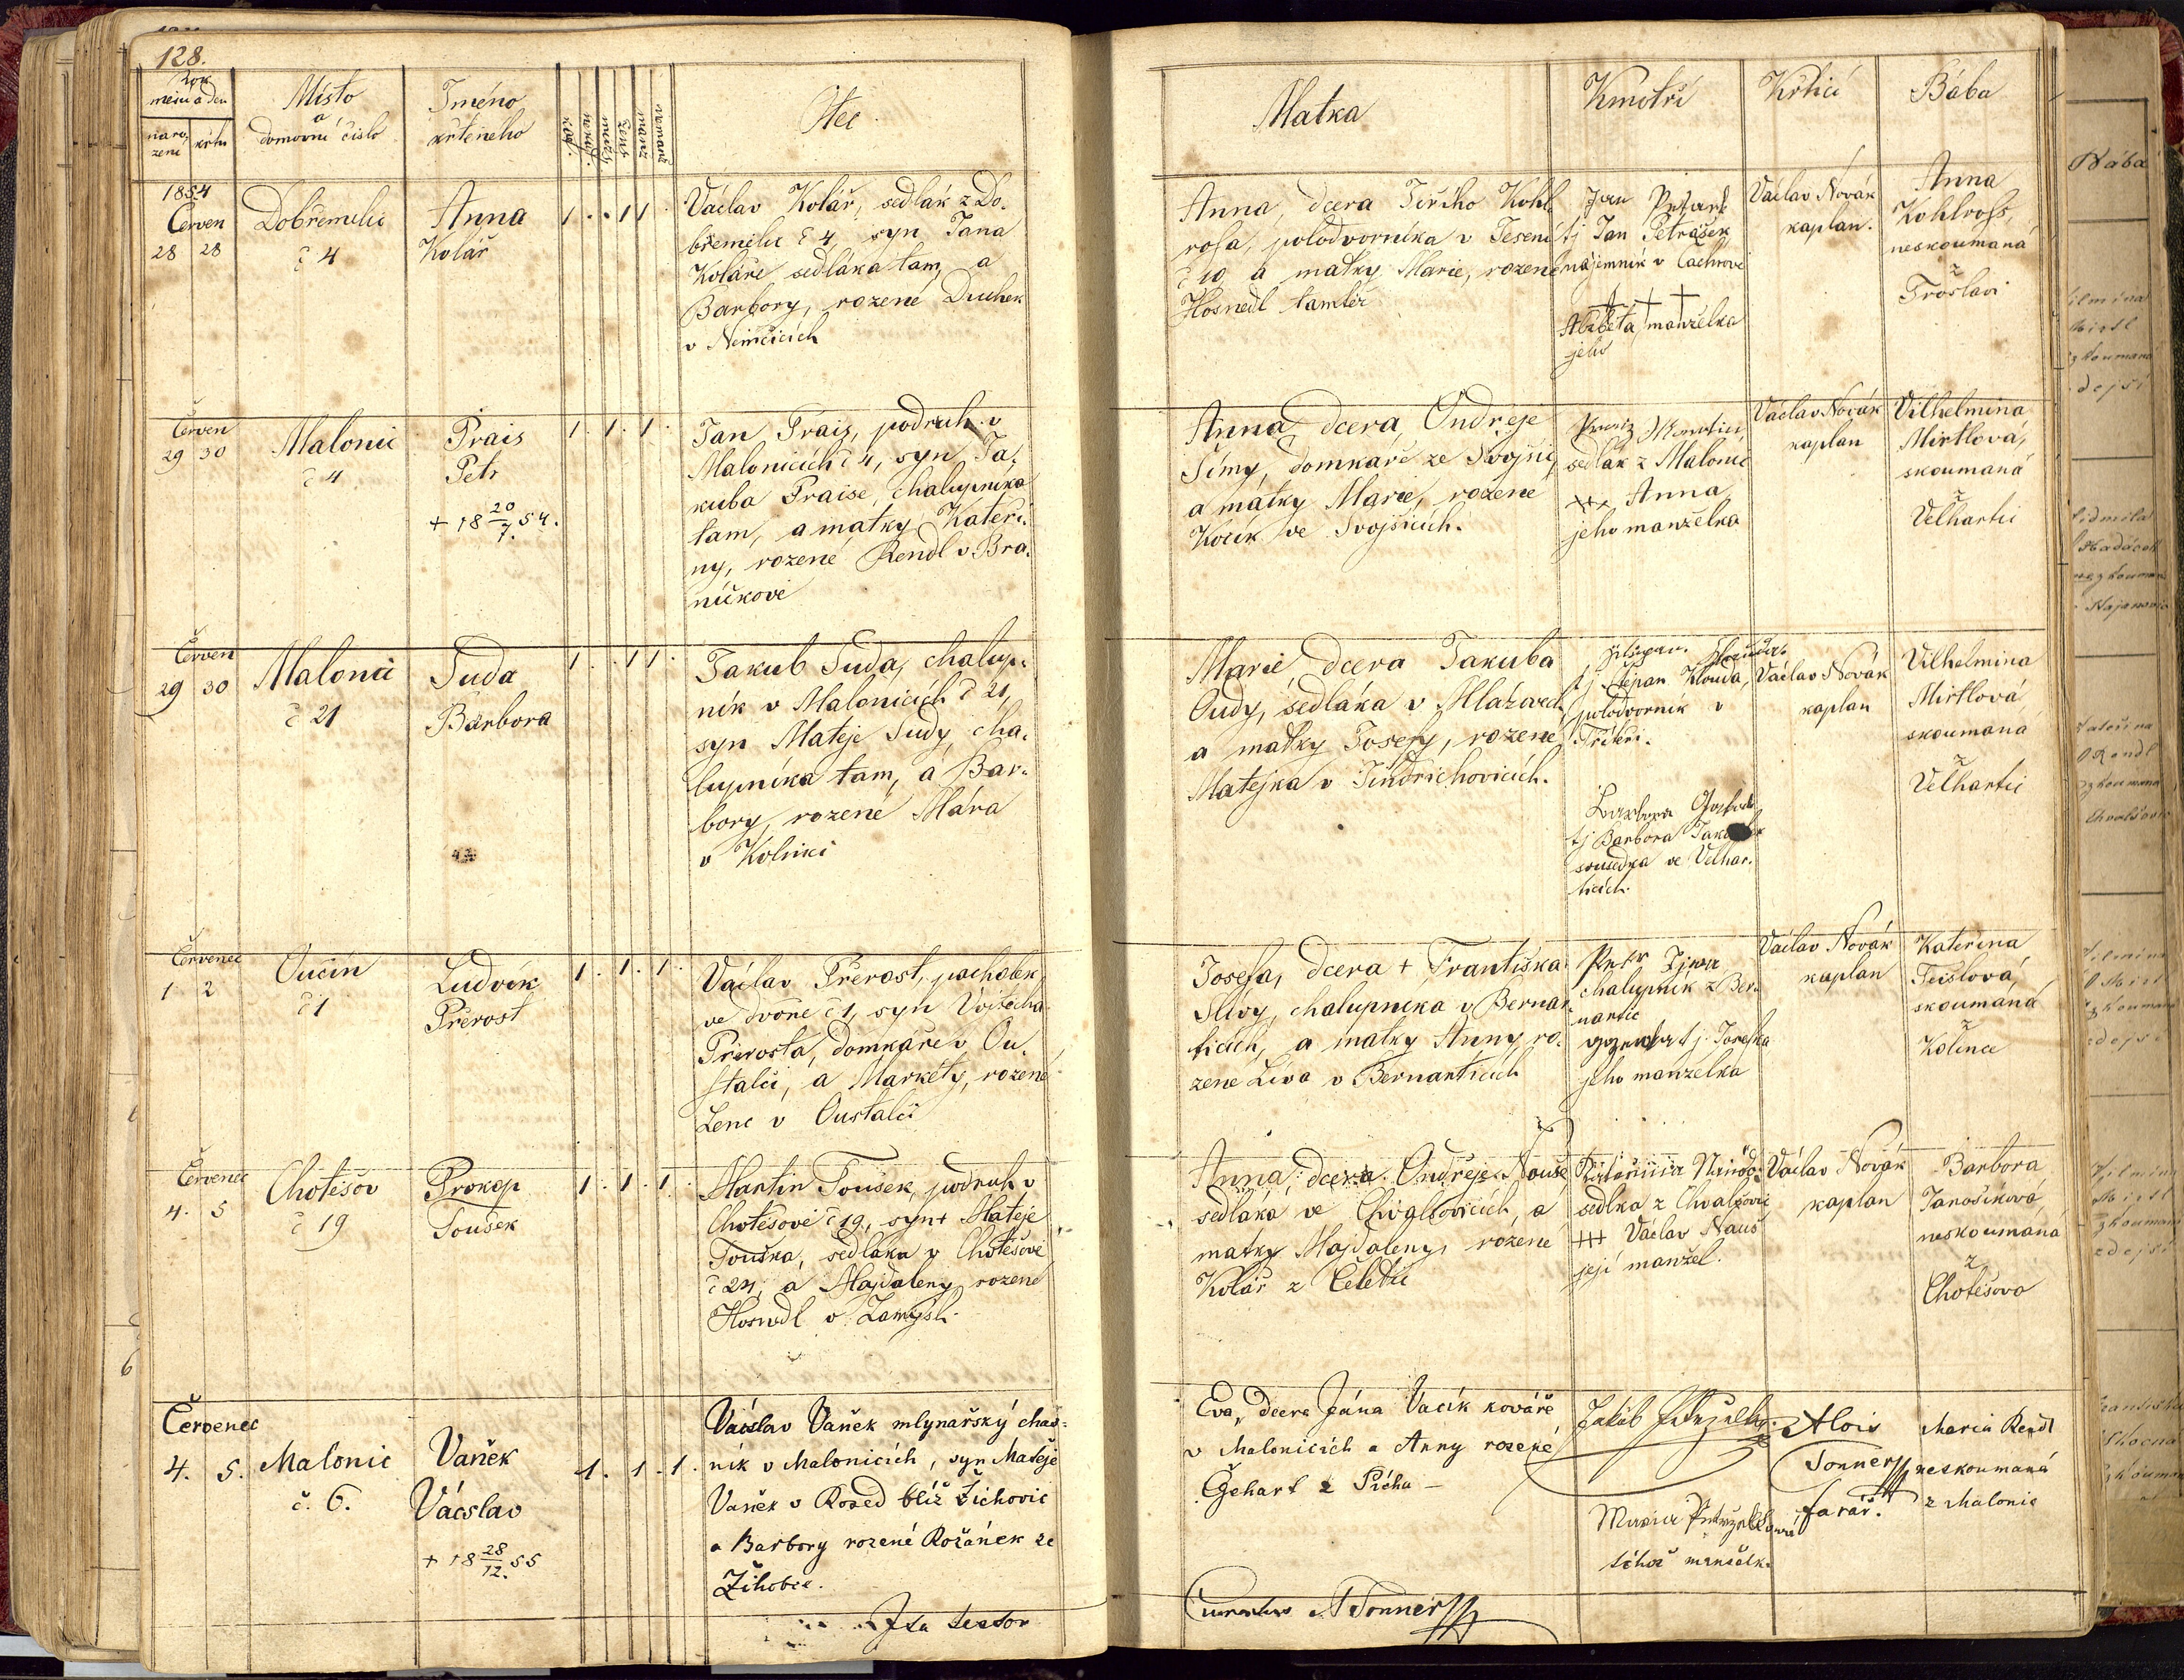 128.
Rok
měsíc a den
naro-
zení
křtu
Místo
a
domovní číslo
Jméno
křteného
Otec
1854
Červen
28 28
Dobřemilic
č 4
Anna
Kolář
1 . . 1 1 .
Václav Kolář, sedlák z Do-
břemilic č 4, syn Jana
Koláře sedláka tam, a
Barbory, rozené Duchek
v Němčicích
Červen
29 30
Malonic
č 4
Prais
Petr
+ 18 20/7. 54.
1 . 1 . 1 .
Jan Prais, podruh v
Malonicích č 4, syn Ja-
kuba Praise, chalupníka
tam, a matky Kateři-
ny, rozené Rendl v Bra-
níčkově
Červen
29 30
Malonic
č 21
Suda
Barbora
1 . . 1 1 .
Jakub Suda, chalup-
ník v Malonicích č 21,
syn Matěje Sudy, cha-
lupníka tam, a Bar-
bory, rozené Mára
v Kolinci
Červenec
1 2
Oučín
č 1
Ludvík
Přerost
1 . 1 . 1 .
Václav Přerost, pacholek
ve dvoře č 1, syn Vojtěcha
Přerosta, domkáře v Ou-
stalči, a Markéty, rozené
Lenc v Oustalči
Červenec
4. 5
Chotěšov
č 19
Prokop
Toušek
1 . 1 . 1 .
Martin Toušek, podruh v
Chotěšově č 19, syn + Matěje
Touška, sedláka v Chotěšově
č 24, a Majdaleny, rozené
Hosnedl v Zamyšli.
Červenec
4. 5.
Malonic
č. 6.
Vaněk
Václav
+ 18 28/12. 55
1. 1. 1.
Václav Vaněk mlynařský chas-
ník v Malonicích, syn Matěje
Vaněk v Rozed blíž Žichovic
a Barbory rozené Rožánek ze
Žihobce.
Ita testor
Matka
Kmotři
Křtící
Bába
Anna, dcera Jiřího Kohl-
rosa, polodvorníka v Jesení
č 10 a matky Marie, rozené
Hosnedl tamtéž
Jan
tj Jan Petrášek
nájemník v Čachrově
+ + +
Alžběta, manželka
jeho
Václav Novák
kaplan.
Anna
Kohlross,
neskoumaná
z
Troslavi
Anna, dcera Ondřeje
Šímy, domkáře ze Svojšic,
a matky Marie, rozené
Kocík ve Svojšicích.
sedlák z Malonic
+++ Anna
jeho manželka
Václav Novák
kaplan
Vilhelmina
Mirtlová,
skoumaná
z
Velhartic
Marie, dcera Jakuba
Oudy, sedláka v Mlázovech
a matky Josefy, rozené
Matějka v Jindřichovicích.
tj Štěpan Klouda,
polodvorník v
Barbora
tj Barbora
sousedka ve Velhar-
ticích.
Václav Novák
kaplan
Vilhelmina
Mirtlová
skoumaná
z
Velhartic
Josefa, dcera + Františka
Slívy, chalupníka v Bernar-
ticích, a matky Anny ro-
zené Líva v Bernarticích
Petr
chalupník z Ber-
nartic
tj. Josefka
jeho manželka
Václav Novák
kaplan
Kateřina
Teislová,
skoumaná
z
Kolince
Anna, dcera Ondřeje Nouše
sedláka ve Chvalšovicích, a
matky Majdaleny, rozené
Kolář z Čeletic
Kateřina
sedlka z Chvalšovic
+++ Václav Nauš
její manžel.
Václav Novák
kaplan
Barbora
Janošíková
neskoumaná
z
Chotěšova
Eva, dcera Jána Vacík kováře
v Malonicích a Anny rozené
Gehart z Pícha -
Jakub
Maria
téhož manželk.
Alois
Tonner
farář.
Maria Rendl
neskoumaná
z Malonic
A Tonner